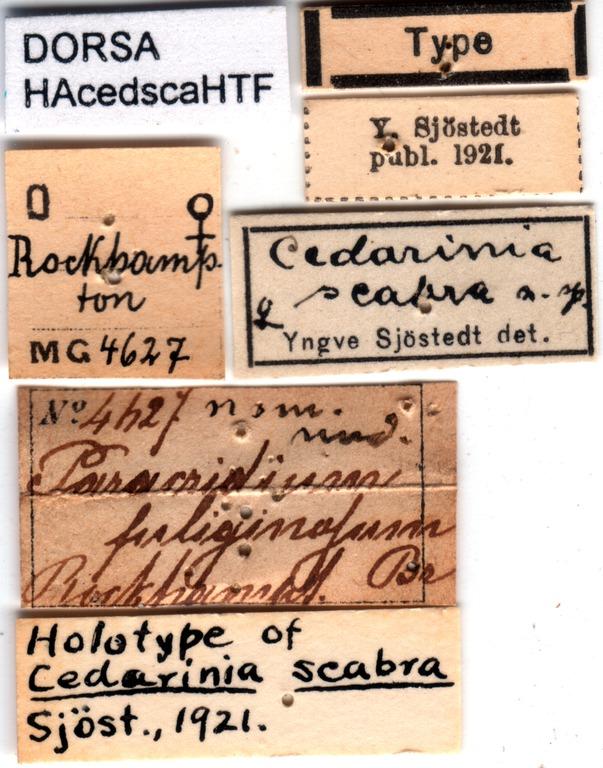 DORSA
HAcedscaHTF
Type
Y. Sjöstedt
publ. 1921.
♀
Rockhamp-
ton
MG 4627
Cedarinia
♀ scabra n. sp.
Yngve Sjöstedt det.
No 4627 nom.
nud.
Paracridium
fuliginosum
Br
Holotype of
Cedarinia scabra
Sjöst., 1921.